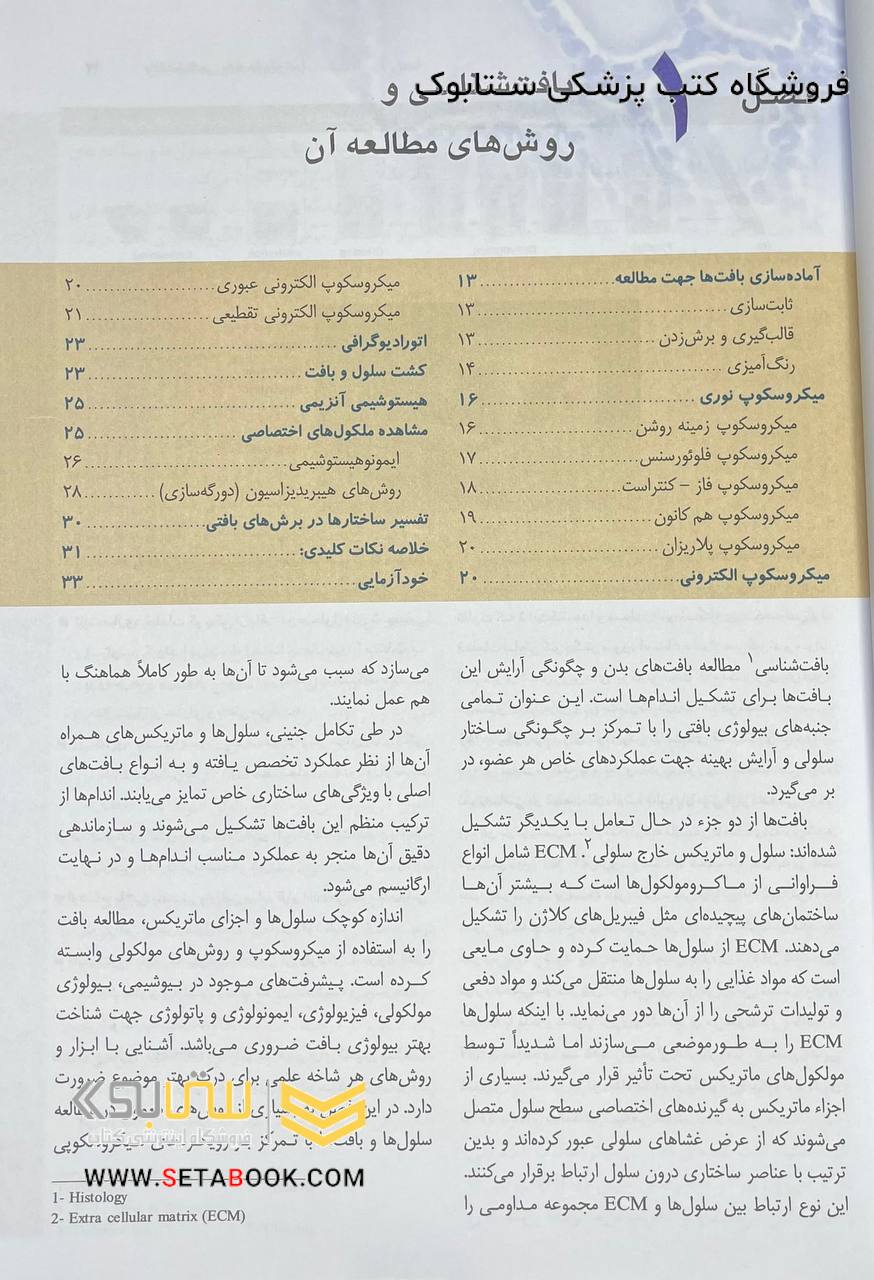 فروشگاه کتب پزشکی ستابوک
فصل ۱
بافت‌شناسی و
روش‌های مطالعه آن
آماده‌سازی بافت‌ها جهت مطالعه ۱۳
ثابت‌سازی ۱۳
قالب‌گیری و برش‌زدن ۱۳
رنگ‌آمیزی ۱۴
میکروسکوپ نوری ۱۶
میکروسکوپ زمینه روشن ۱۶
میکروسکوپ فلوئورسنس ۱۷
میکروسکوپ فاز – کنتراست ۱۸
میکروسکوپ هم کانون ۱۹
میکروسکوپ پلاریزان ۲۰
میکروسکوپ الکترونی ۲۰
میکروسکوپ الکترونی عبوری ۲۰
میکروسکوپ الکترونی تقطیعی ۲۱
اتورادیوگرافی ۲۳
کشت سلول و بافت ۲۳
هیستوشیمی آنزیمی ۲۵
مشاهده ملکول‌های اختصاصی ۲۵
ایمونوهیستوشیمی ۲۶
روش‌های هیبریدیزاسیون (دورگه‌سازی) ۲۸
تفسیر ساختارها در برش‌های بافتی ۳۰
خلاصه نکات کلیدی: ۳۱
خودآزمایی ۳۳
بافت‌شناسی۱ مطالعه بافت‌های بدن و چگونگی آرایش این
بافت‌ها برای تشکیل اندام‌ها است. این عنوان تمامی
جنبه‌های بیولوژی بافتی را با تمرکز بر چگونگی ساختار
سلولی و آرایش بهینه جهت عملکردهای خاص هر عضو، در
بر می‌گیرد.
بافت‌ها از دو جزء در حال تعامل با یکدیگر تشکیل
شده‌اند: سلول و ماتریکس خارج سلولی۲. ECM شامل انواع
فراوانی از ماکرومولکول‌ها است که بیشتر آن‌ها
ساختمان‌های پیچیده‌ای مثل فیبریل‌های کلاژن را تشکیل
می‌دهند. ECM از سلول‌ها حمایت کرده و حاوی مایعی
است که مواد غذایی را به سلول‌ها منتقل می‌کند و مواد دفعی
و تولیدات ترشحی را از آن‌ها دور می‌نماید. با اینکه سلول‌ها
ECM را به طورموضعی می‌سازند اما شدیداً توسط
مولکول‌های ماتریکس تحت تأثیر قرار می‌گیرند. بسیاری از
اجزاء ماتریکس به گیرنده‌های اختصاصی سطح سلول متصل
می‌شوند که از عرض غشاهای سلولی عبور کرده‌اند و بدین
ترتیب با عناصر ساختاری درون سلول ارتباط برقرار می‌کنند.
این نوع ارتباط بین سلول‌ها و ECM مجموعه مداومی را
می‌سازد که سبب می‌شود تا آن‌ها به طور کاملاً هماهنگ با
هم عمل نمایند.
در طی تکامل جنینی، سلول‌ها و ماتریکس‌های همراه
آن‌ها از نظر عملکرد تخصص یافته و به انواع بافت‌های
اصلی با ویژگی‌های ساختاری خاص تمایز می‌یابند. اندام‌ها از
ترکیب منظم این بافت‌ها تشکیل می‌شوند و سازماندهی
دقیق آن‌ها منجر به عملکرد مناسب اندام‌ها و در نهایت
ارگانیسم می‌شود.
اندازه کوچک سلول‌ها و اجزای ماتریکس، مطالعه بافت
را به استفاده از میکروسکوپ و روش‌های مولکولی وابسته
کرده است. پیشرفت‌های موجود در بیوشیمی، بیولوژی
مولکولی، فیزیولوژی، ایمونولوژی و پاتولوژی جهت شناخت
بهتر بیولوژی بافت ضروری می‌باشد. آشنایی با ابزار و
روش‌های هر شاخه علمی برای درک بهتر موضوع ضرورت
دارد. در این
سلول‌ها و بافت‌ها با تمرکز بر
ستابوک
فروشگاه اینترنتی کتاب
WWW.SETABOOK.COM
1- Histology
2- Extra cellular matrix (ECM)